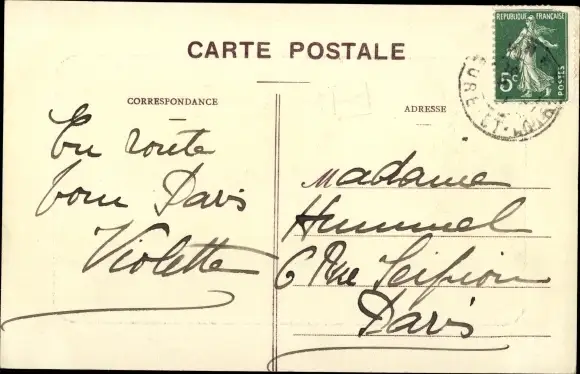 CARTE POSTALE
CORRESPONDANCE
En route
pour Paris
Violette
ADRESSE
Madame
Hummel
6 Rue Scipion
Paris
RÉPUBLIQUE FRANÇAISE
5c
POSTES
EURE-ET-LOIR